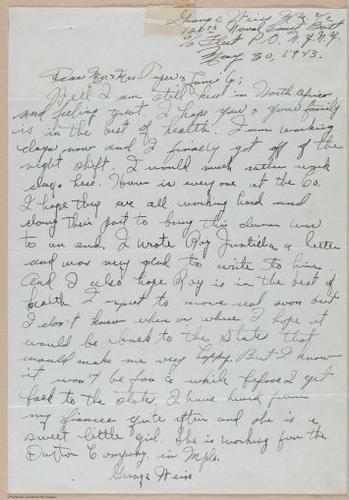 George Weiss
Naval Const Batt
c/o Fleet P.O. N.Y. N.Y.
May 30, 1943.
Dear Mr. & Mrs. & Family;
Well I am still here in North Africa
and feeling great. I hope you & your family
is in the best of health. I am working
days now and I finally got off of the
night shift. I would much rather work
days here. How is everyone at the Co.
I hope they are all working hard and
doing their part to bring this war
to an end. I wrote Roy a letter
and was very glad to write to him.
And I also hope Roy is in the best of
health. I expect to move real soon but
I don't know when or where. I hope it
would be back to the States that
would make me very happy. But I know
it won't be for a while before I get
back to the states. I have heard from
my fiancee quite often and she is a
sweet little girl. She is working for the
Company in Mpls.
George Weiss